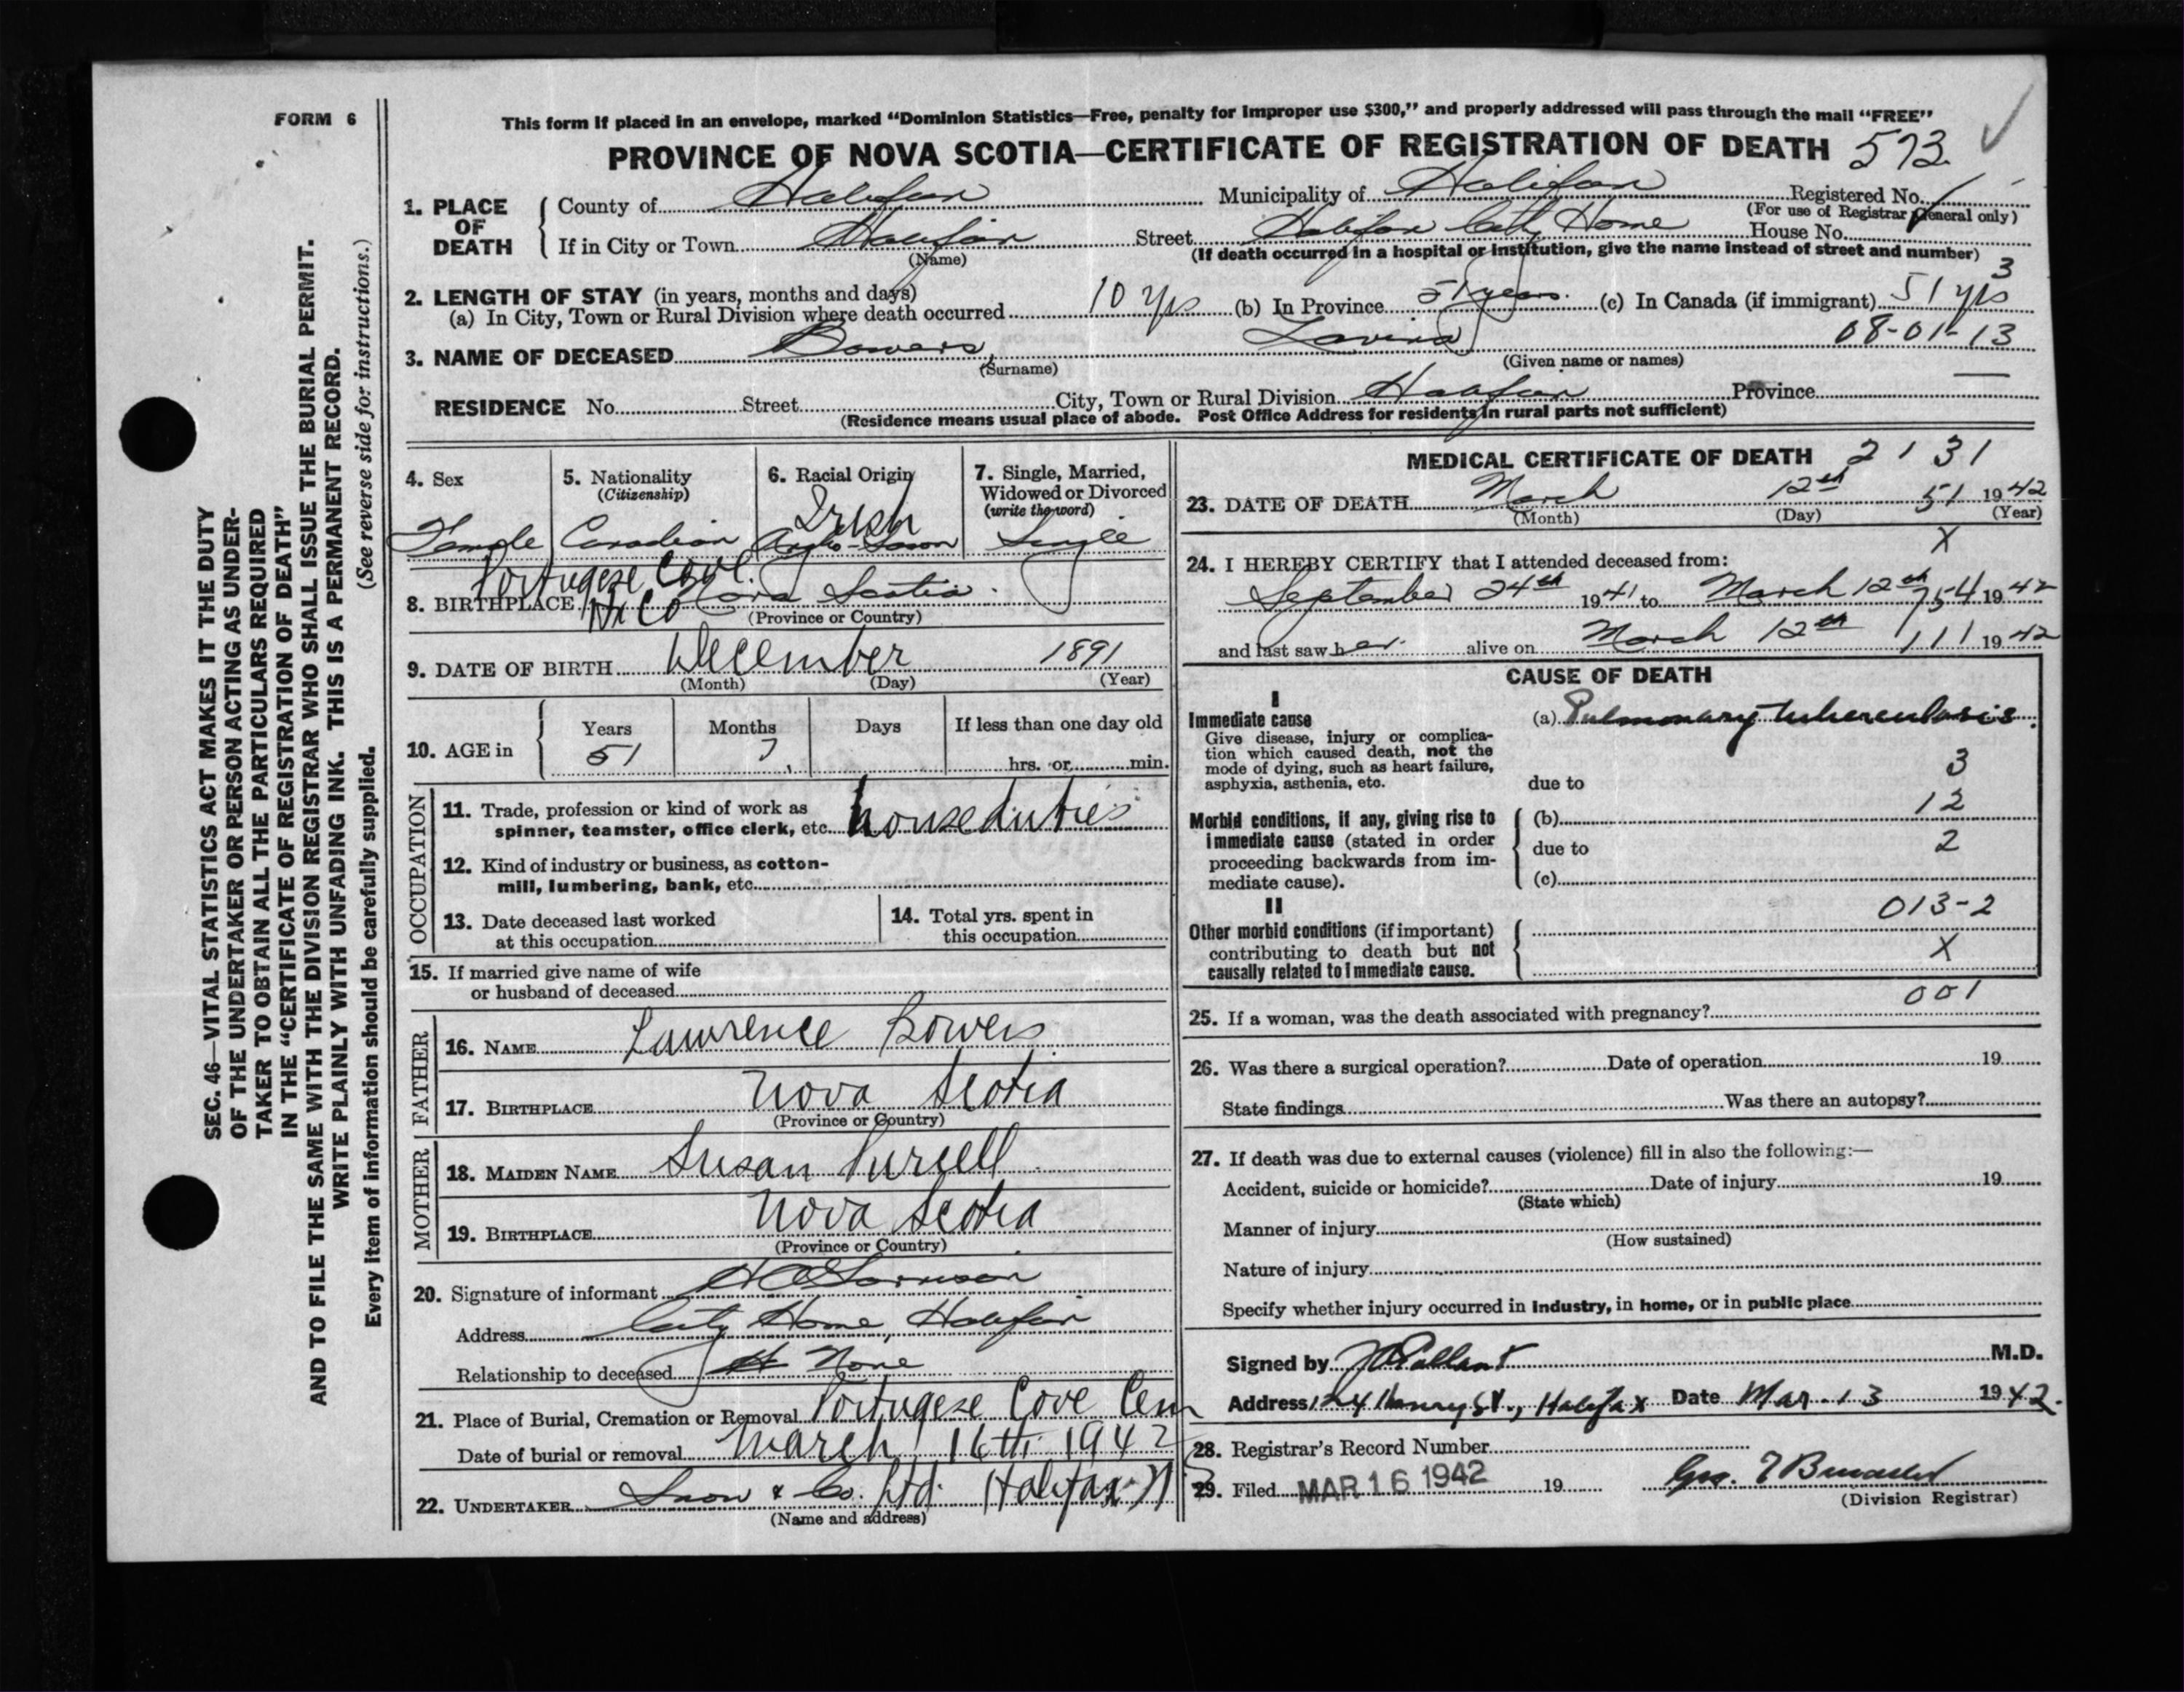 FORM 6
This form if placed in an envelope, marked "Dominion Statistics—Free, penalty for improper use $300," and properly addressed will pass through the mail "FREE"
PROVINCE OF NOVA SCOTIA—CERTIFICATE OF REGISTRATION OF DEATH 573
1. PLACE OF DEATH
County of Halifax Municipality of Halifax Registered No.
(For use of Registrar General only)
If in City or Town Halifax Street Halifax City Home House No.
(Name) (If death occurred in a hospital or institution, give the name instead of street and number)
3
2. LENGTH OF STAY (in years, months and days)
(a) In City, Town or Rural Division where death occurred 10 yrs (b) In Province 51 years. (c) In Canada (if immigrant) 51 yrs
08-01-13
3. NAME OF DECEASED Bowers, Lavina
(Surname) (Given name or names)
RESIDENCE No. Street City, Town or Rural Division Halifax Province
(Residence means usual place of abode. Post Office Address for residents in rural parts not sufficient)
4. Sex Female
5. Nationality (Citizenship) Canadian
6. Racial Origin Irish Anglo-Saxon
7. Single, Married, Widowed or Divorced (write the word) Single
8. BIRTHPLACE Portugese Cove. Hx Co Nova Scotia.
(Province or Country)
9. DATE OF BIRTH December 1891
(Month) (Day) (Year)
10. AGE in Years 51 Months 7 Days If less than one day old hrs. or min.
OCCUPATION
11. Trade, profession or kind of work as spinner, teamster, office clerk, etc. house duties
12. Kind of industry or business, as cotton-mill, lumbering, bank, etc.
13. Date deceased last worked at this occupation
14. Total yrs. spent in this occupation
15. If married give name of wife or husband of deceased
FATHER
16. NAME Lawrence Bowers
17. BIRTHPLACE Nova Scotia
(Province or Country)
MOTHER
18. MAIDEN NAME Susan Purcell
19. BIRTHPLACE Nova Scotia
(Province or Country)
20. Signature of informant
Address City Home, Halifax
Relationship to deceased None
21. Place of Burial, Cremation or Removal Portugese Cove Cem
Date of burial or removal March 16th 1942
22. UNDERTAKER Snow & Co. Ltd. Halifax N
(Name and address)
MEDICAL CERTIFICATE OF DEATH 2131
23. DATE OF DEATH March 12th 51 1942
(Month) (Day) (Year)
X
24. I HEREBY CERTIFY that I attended deceased from:
September 24th 1941 to March 12th 754 1942
and last saw her alive on March 12th 111 1942
CAUSE OF DEATH
I
Immediate cause
Give disease, injury or complication which caused death, not the mode of dying, such as heart failure, asphyxia, asthenia, etc.
(a) Pulmonary tuberculosis.
3
due to
12
Morbid conditions, if any, giving rise to immediate cause (stated in order proceeding backwards from immediate cause).
(b)
due to 2
(c)
II
013-2
Other morbid conditions (if important) contributing to death but not causally related to immediate cause.
X
001
25. If a woman, was the death associated with pregnancy?
26. Was there a surgical operation? Date of operation 19
State findings Was there an autopsy?
27. If death was due to external causes (violence) fill in also the following:—
Accident, suicide or homicide? Date of injury 19
(State which)
Manner of injury
(How sustained)
Nature of injury
Specify whether injury occurred in industry, in home, or in public place
Signed by M.D.
Address 124 Henry St., Halifax Date Mar. 13 1942.
28. Registrar's Record Number
29. Filed MAR 16 1942 19
(Division Registrar)
SEC. 46—VITAL STATISTICS ACT MAKES IT THE DUTY
OF THE UNDERTAKER OR PERSON ACTING AS UNDER-
TAKER TO OBTAIN ALL THE PARTICULARS REQUIRED
IN THE "CERTIFICATE OF REGISTRATION OF DEATH"
AND TO FILE THE SAME WITH THE DIVISION REGISTRAR WHO SHALL ISSUE THE BURIAL PERMIT.
WRITE PLAINLY WITH UNFADING INK. THIS IS A PERMANENT RECORD.
(See reverse side for instructions.)
Every item of information should be carefully supplied.